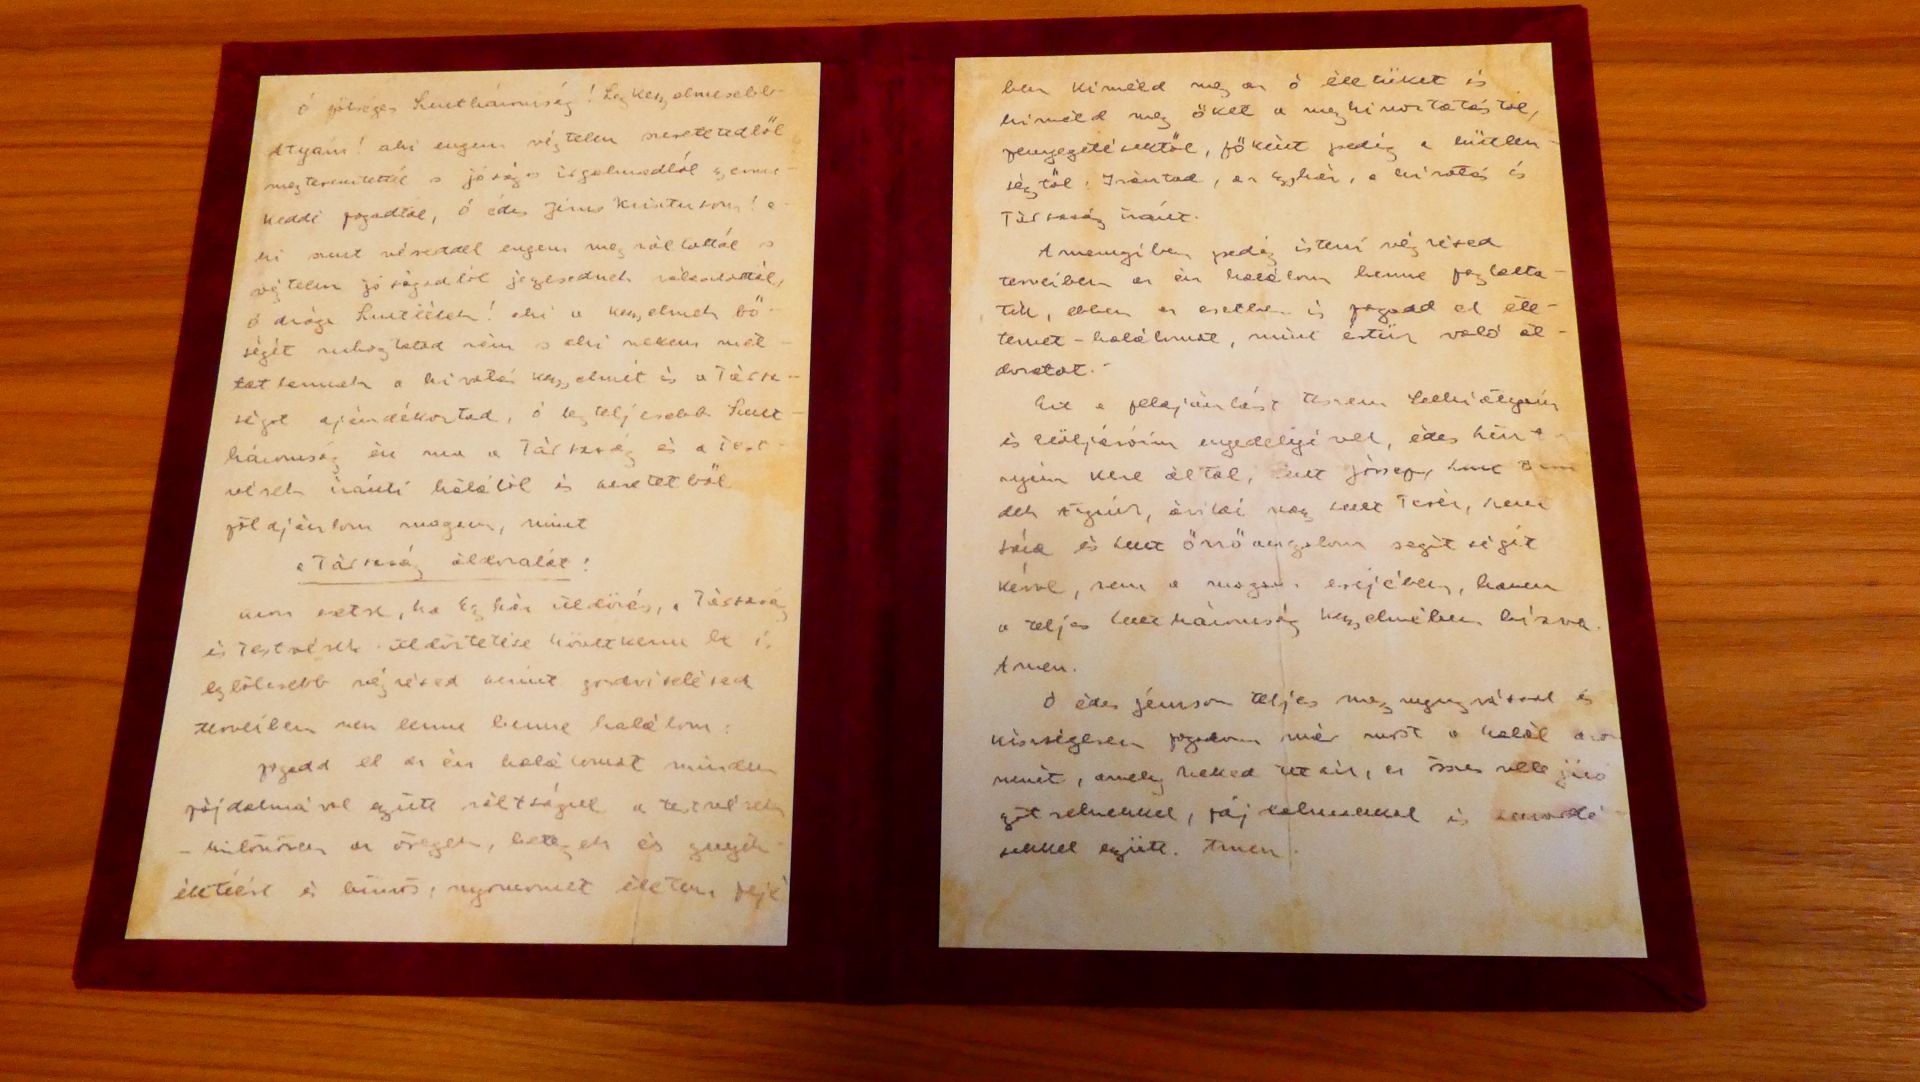 Ó fölséges Szentháromság! Legkegyelmesebb
Atyám! aki engem végtelen szeretetedből
megteremtettél s jóságos irgalmadból gyerme-
keddé fogadtál, ó édes Jézus Krisztusom! a-
ki szent véreddel engem megváltottál s
végtelen jóságodból jegyesednek választottál,
ó drága Szentlélek! aki a kegyelmek bő-
ségét rám s aki nekem mél-
tatlannak a hivatás kegyelmét és a Társa-
ságot ajándékoztad, ó legteljesebb Szent-
háromság én ma a Társaság és a Test-
vérek iránti hálából és szeretetből
fölajánlom magam, mint
a Társaság áldozatát!
azon esetre, ha Egyház üldözés, a Társaság
és Testvérek üldöztetése következne be s
legbölcsebb végzésed szerint gondviselésed
terveiben nem lenne benne halálom:
fogadd el az én halálomat minden
fájdalmával együtt váltságul a testvérek
- különösen az öregek, betegek és gyengék -
életéért és bűnös, nyomorult életem fejé-
ben kiméld meg az ő életüket és
kiméld meg őket a megkinoztatástól,
fenyegetésektől, főként pedig a hűtlen-
ségtől: Irántad, az Egyház, a hivatás és
Társaság iránt.
Amennyiben pedig isteni végzésed
terveiben az én halálom benne foglalta-
tik, ebben az esetben is fogadd el éle-
temet - halálomat, mint értük való ál-
dozatot.-
Ezt a felajánlást teszem Lelkiatyám
és Elöljáróim engedélyével, édes Szűz a-
nyám keze által, Szent József, Szent Bene
dek Atyánk, ávilai nagy Szent Teréz, Szent
és Szent Őrzőangyalom segítségét
kérve, nem a magam erejében, hanem
a teljes Szentháromság kegyelmében bízva.
Amen.
Ó édes Jézusom teljes megnyugvással és
készségesen fogadom már most a halál azon
nemét, amely neked tetszik, az összes vele járó
gyötrelmekkel, fájdalmakkal és szenvedé-
sekkel együtt. Amen.